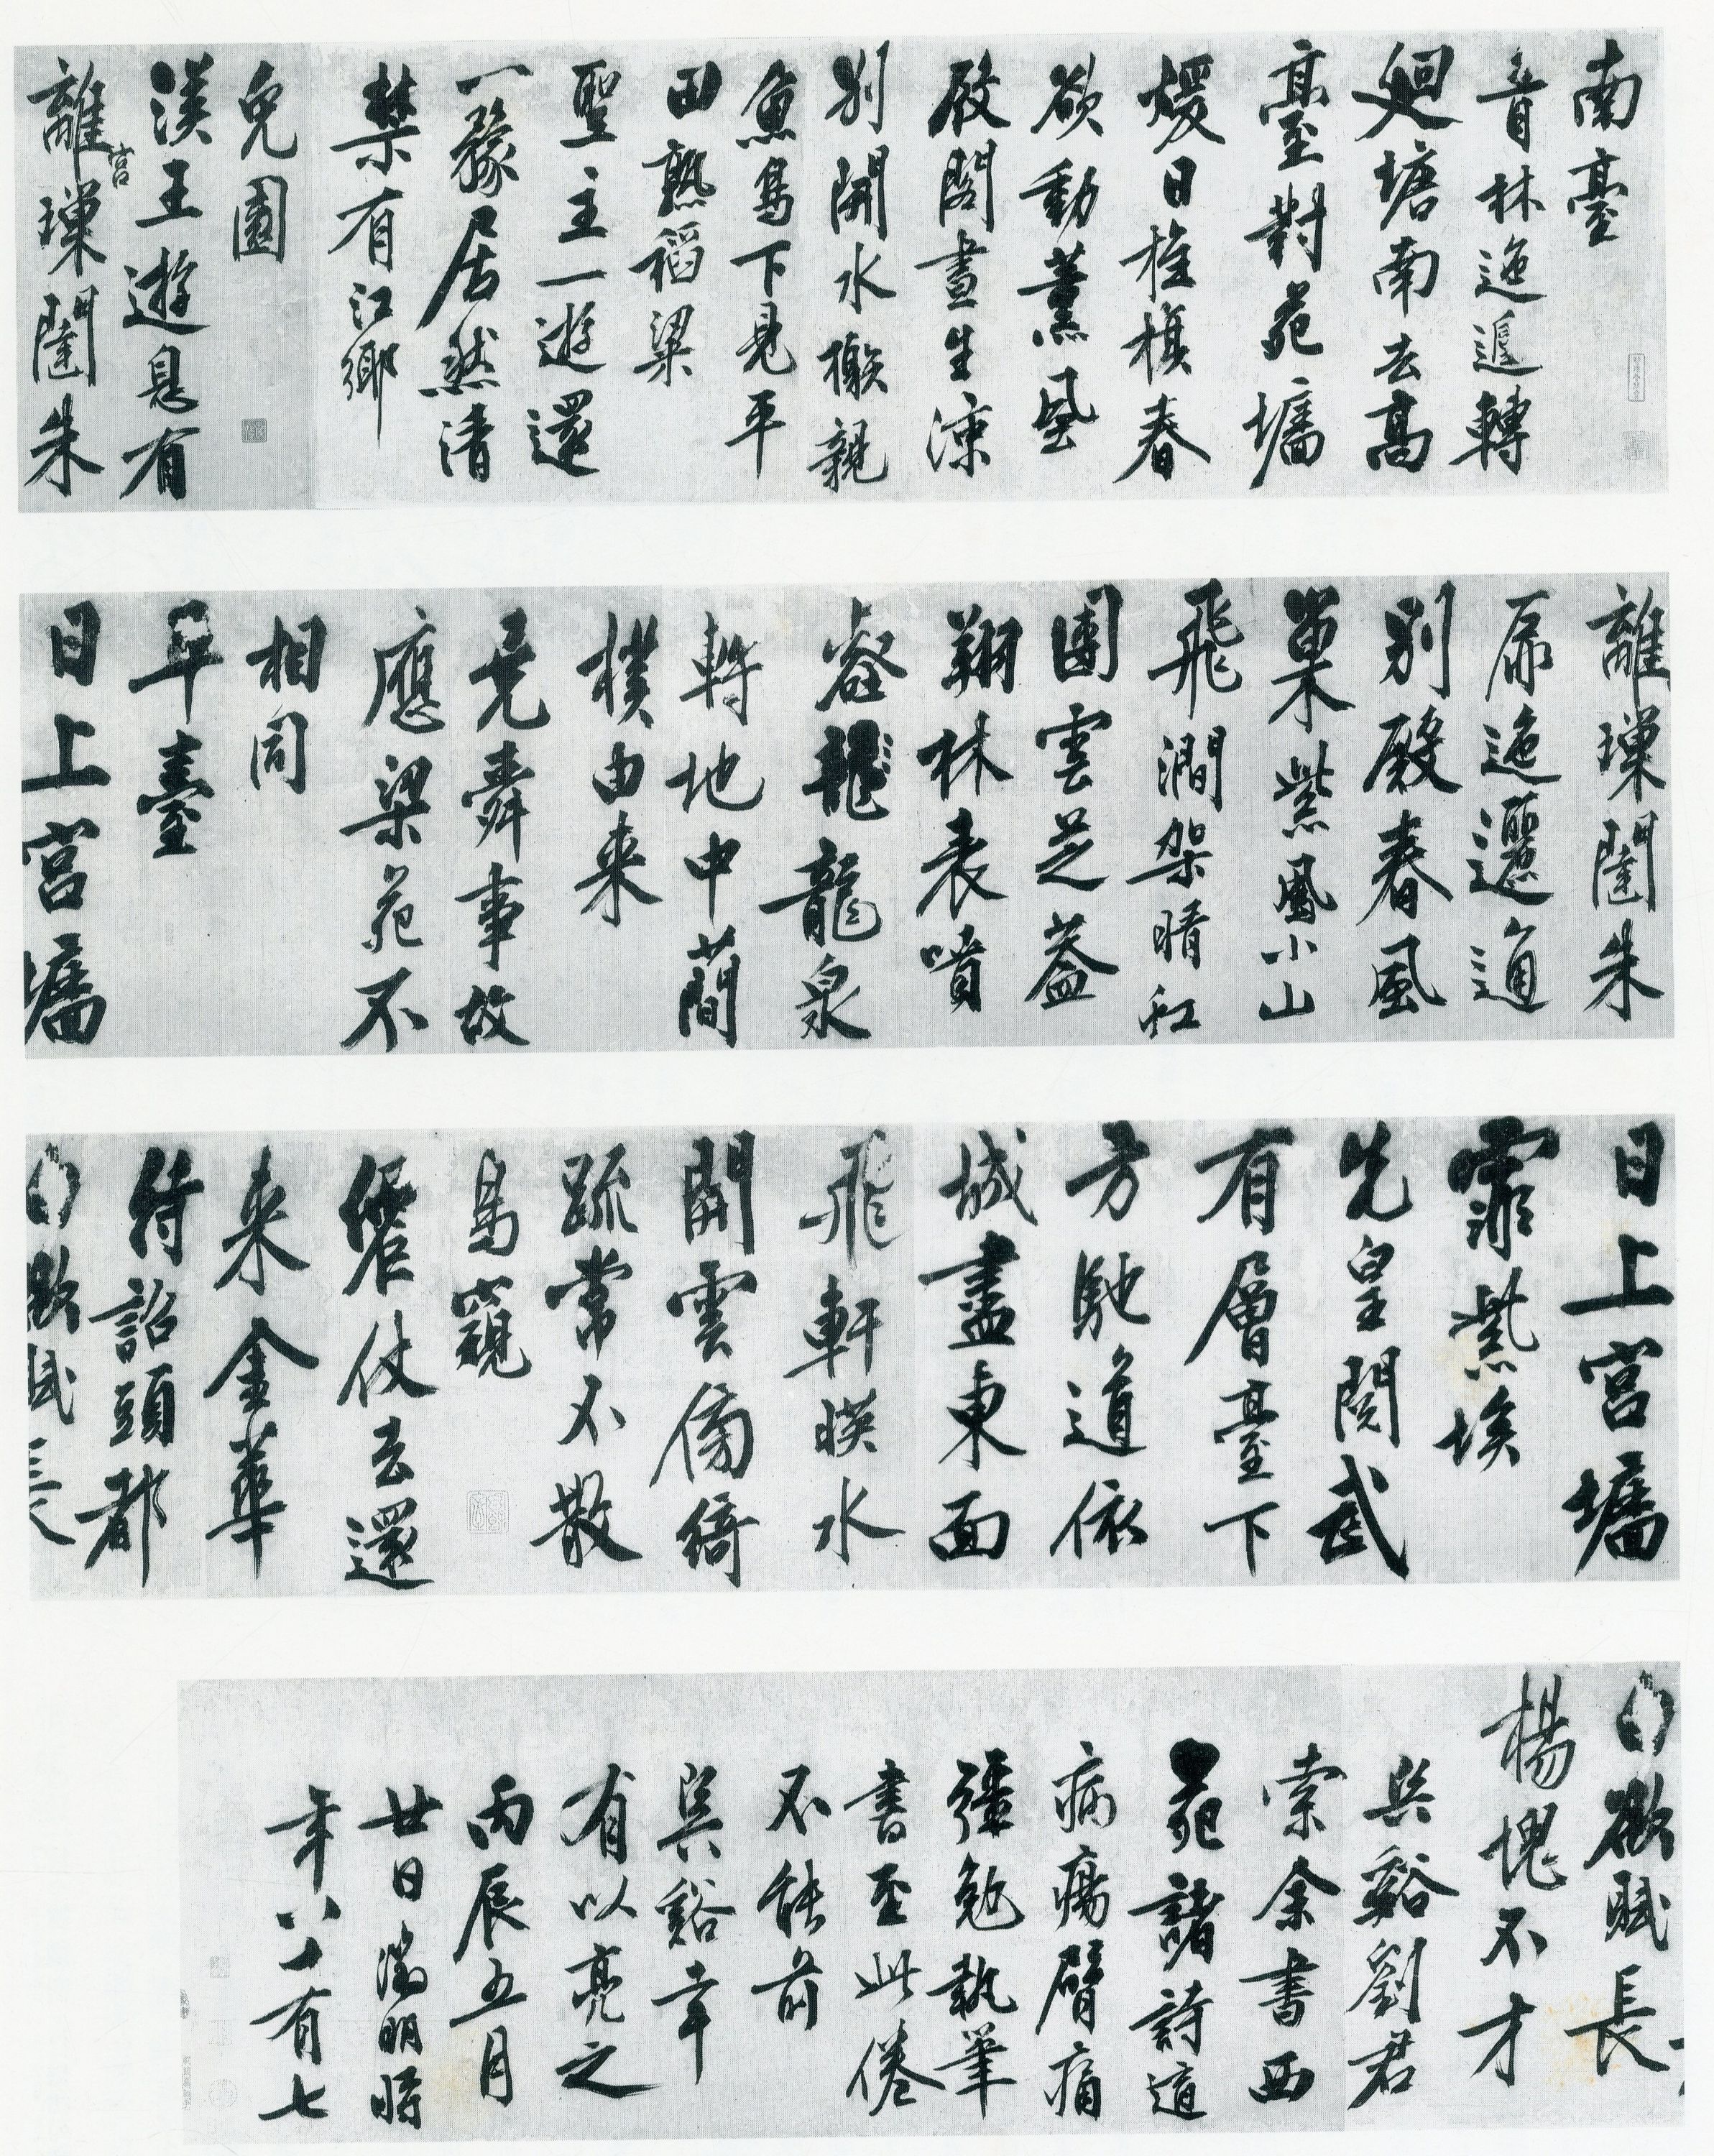 南臺
青林迤遞轉
廻塘南去高
臺對苑墻
煖日旌旗春
欲動薰風
殿閣晝生涼
別開水榭親
魚鳥下見平
田熟稻粱
聖主一遊還
一豫居然清
禁有江鄉
兔園
漢王遊息有
離宮璅闥朱
離璅闥朱
扉迤邐通
別殿春風
巢紫鳳小山
飛澗架晴虹
團雲芝蓋
翔林表噴
壑龍龍泉
轉地中簡
樸由來
堯舜事故
應梁苑不
相同
平臺
日上宮墻
日上宮墻
霏紫埃
先皇閱武
有層臺下
方馳道依
城盡東面
飛軒映水
開雲傍綺
疏常不散
鳥窺
僊仗去還
來金華
待詔頭都
白欲賦長
白欲賦長
楊愧不才
吳谿劉君
索余書西
苑諸詩適
病瘍臂痛
彊勉執筆
書至此倦
不能前
吳谿幸
有以亮之
丙辰五月
廿日徵明時
年八十有七